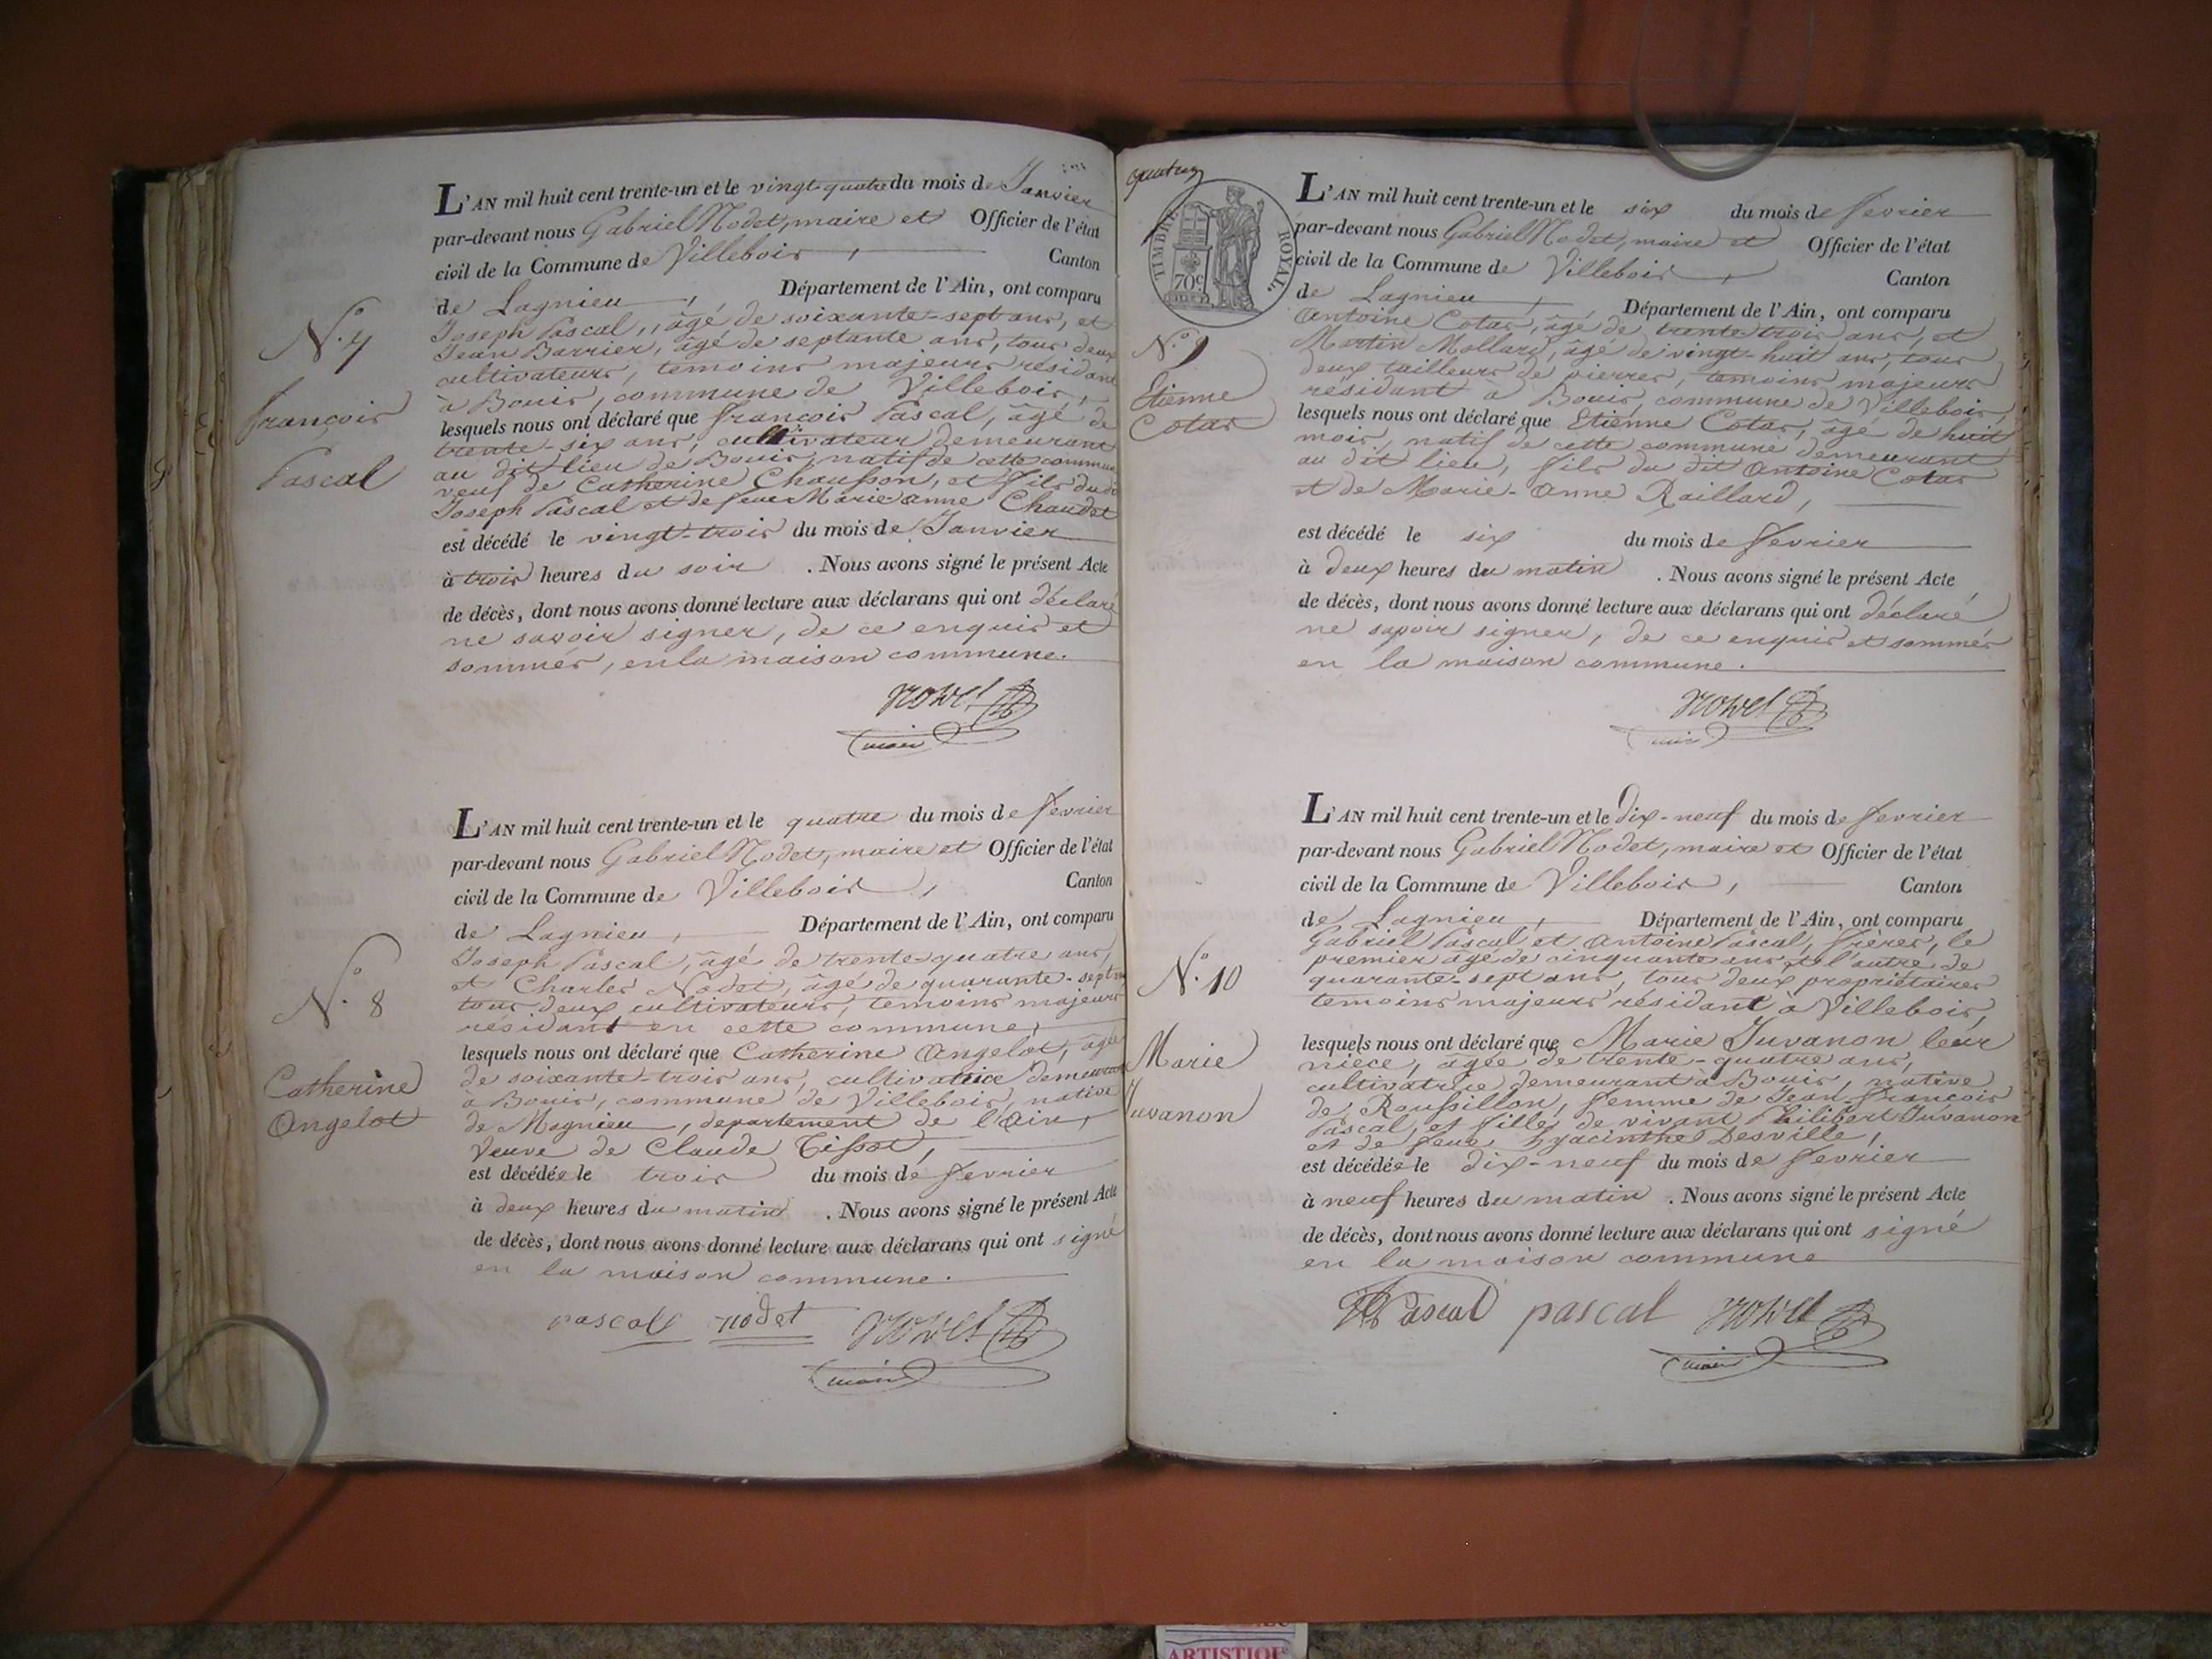 N.º 7
François
Pascal
L'AN mil huit cent trente-un et le vingt-quatre du mois de Janvier
par-devant nous Gabriel Nodet, maire et Officier de l'état
civil de la Commune de Villebois, Canton
de Lagnieu, Département de l'Ain, ont comparu
Joseph Pascal, âgé de soixante-sept ans, et
Jean Barrier, âgé de septante ans, tous deux
cultivateurs, temoins majeurs résidant
à Bouis, commune de Villebois,
lesquels nous ont déclaré que François Pascal, âgé de
trente-six ans, cultivateur demeurant
au dit lieu de Bouis, natif de cette commune
veuf de Catherine Chausson, et fils du dit
Joseph Pascal et de feue Marie-anne Chaudet
est décédé le vingt-trois du mois de Janvier
à trois heures du soir. Nous avons signé le présent Acte
de décès, dont nous avons donné lecture aux déclarans qui ont déclaré
ne savoir signer, de ce enquis et
sommés, en la maison commune.
Nodet
maire
N.º 8
Catherine
Angelot
L'AN mil huit cent trente-un et le quatre du mois de fevrier
par-devant nous Gabriel Nodet, maire et Officier de l'état
civil de la Commune de Villebois, Canton
de Lagnieu, Département de l'Ain, ont comparu
Joseph Pascal, âgé de trente-quatre ans,
et Charles Nodet, âgé de quarante-sept ans
tous deux cultivateurs, temoins majeurs
résidant en cette commune,
lesquels nous ont déclaré que Catherine Angelot, âgée
de soixante-trois ans, cultivatrice demeurant
à Bouis, commune de Villebois, native
de Magnieu, departement de l'Ain,
Veuve de Claude Tissot,
est décédée le trois du mois de fevrier
à deux heures du matin. Nous avons signé le présent Acte
de décès, dont nous avons donné lecture aux déclarans qui ont signé
en la maison commune.
pascal nodet Nodet
maire
TIMBRE ROYAL.
70c
N.º 9
Etienne
Cotas
L'AN mil huit cent trente-un et le six du mois de fevrier
par-devant nous Gabriel Nodet, maire et Officier de l'état
civil de la Commune de Villebois, Canton
de Lagnieu, Département de l'Ain, ont comparu
Antoine Cotas, âgé de trente-trois ans, et
Martin Mollard, âgé de vingt-huit ans, tous
deux tailleurs de pierres, temoins majeurs
résidant à Bouis, commune de Villebois,
lesquels nous ont déclaré que Etienne Cotas, âgé de huit
mois, natif de cette commune demeurant
au dit lieu, fils du dit Antoine Cotas
et de Marie-Anne Raillard,
est décédé le six du mois de fevrier
à deux heures du matin. Nous avons signé le présent Acte
de décès, dont nous avons donné lecture aux déclarans qui ont déclaré
ne savoir signer, de ce enquis et sommés
en la maison commune.
Nodet
maire
N.º 10
Marie
Juvanon
L'AN mil huit cent trente-un et le dix-neuf du mois de fevrier
par-devant nous Gabriel Nodet, maire et Officier de l'état
civil de la Commune de Villebois, Canton
de Lagnieu, Département de l'Ain, ont comparu
Gabriel Pascal et Antoine Pascal, frères, le
premier âgé de cinquante ans et l'autre de
quarante-sept ans, tous deux propriétaires
temoins majeurs résidant à Villebois,
lesquels nous ont déclaré que Marie Juvanon leur
nièce, âgée de trente-quatre ans,
cultivatrice demeurant à Bouis, native
de Roussillon, femme de Jean-François
Pascal, et fille de vivant Philibert Juvanon
et de feue hyacinthe Desville,
est décédée le dix-neuf du mois de fevrier
à neuf heures du matin. Nous avons signé le présent Acte
de décès, dont nous avons donné lecture aux déclarans qui ont signé
en la maison commune
Pascal pascal Nodet
maire
ARTISTIQUE